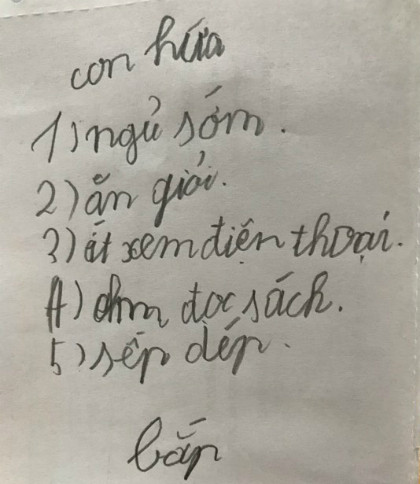 con hứa
1) ngủ sớm.
2) ăn giỏi.
3) ít xem điện thoại.
4) chm đọc sách.
5) sếp dép.
bắp